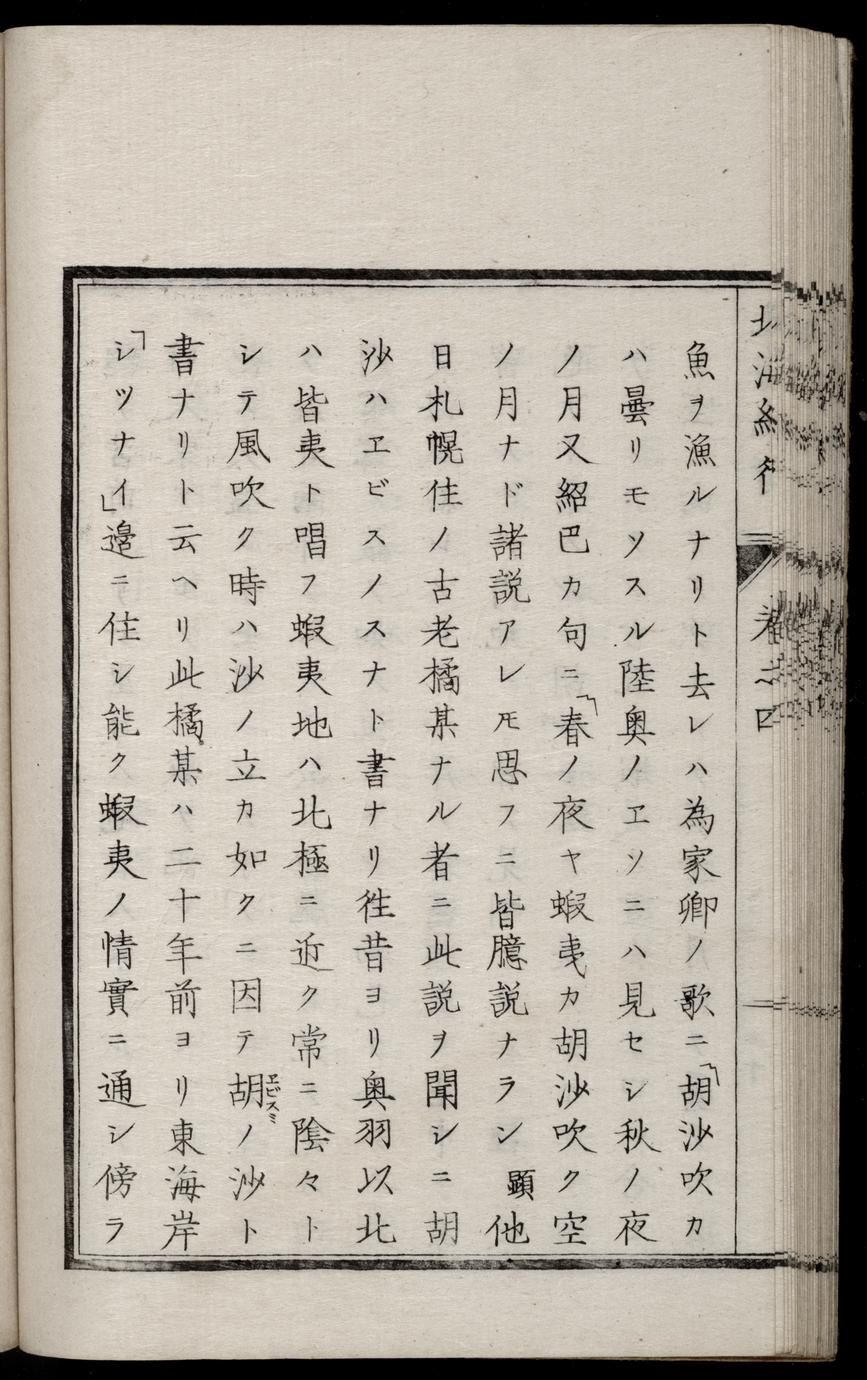 北海紀行 巻之四
魚ヲ漁ルナリト去レハ為家卿ノ歌ニ「胡沙吹カ
ハ曇リモソスル陸奥ノエソニハ見セシ秋ノ夜
ノ月又紹巴カ句ニ「春ノ夜ヤ蝦夷カ胡沙吹ク空
ノ月ナド諸説アレ𪜈思フニ皆臆説ナラン顕他
日札幌住ノ古老橘某ナル者ニ此説ヲ聞シニ胡
沙ハエビスノスナト書ナリ徃昔ヨリ奥羽以北
ハ皆夷ト唱フ蝦夷地ハ北極ニ近ク常ニ陰々ト
シテ風吹ク時ハ沙ノ立カ如クニ因テ胡ノ沙ト
エビスミ
書ナリト云ヘリ此橘某ハ二十年前ヨリ東海岸
「シツナイ」邉ニ住シ能ク蝦夷ノ情實ニ通シ傍ラ